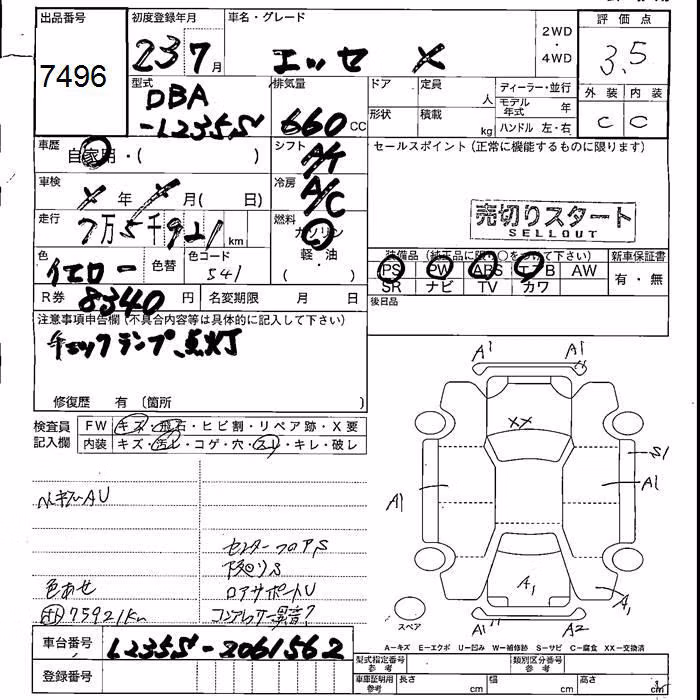 出品番号 初度登録年月 車名・グレード 2WD ・ 4WD 評価点
7496 23 7月 エッセ X 3.5
型式 排気量 ドア 定員 人 ディーラー・並行 外装 内装
DBA-L235S 660cc 形状 積載 kg モデル年式 年 C C
ハンドル 左・右
車歴 自家用・( ) シフト A/T セールスポイント (正常に機能するものに限ります)
車検 X年 X月( 日) 冷房 A/C
走行 7万5千921km 燃料 ガソリン 軽・油
売切りスタート
SELLOUT
色 イエロー 色替 色コード 541
装備品 (純正品に限り○をつけて下さい) 新車保証書
PS PW ABS エアB AW 有・無
SR ナビ TV カワ
R券 8340円 名変期限 月 日 後日品
注意事項申告欄 (不具合内容等は具体的に記入して下さい)
チェックランプ点灯
修復歴 有 (箇所 )
検査員記入欄 FW キズ・飛石・ヒビ割・リペア跡・X要
内装 キズ・汚レ・コゲ・穴・スレ・キレ・破レ
A1 A1
XX
S1
A1 A1
A1 A1
A1 A2
スペア
AU
センターフロアS
下廻りS
色あせ ロアサポートU
75921km コンプレッサー異音?
A-キズ E-エクボ U-凹み W-補修跡 S-サビ C-腐食 XX-交換済
車台番号 L235S-2061562
型式指定番号 参考 類別区分番号 参考
登録番号
車庫証明用 参考 長さ cm 幅 cm 高さ cm